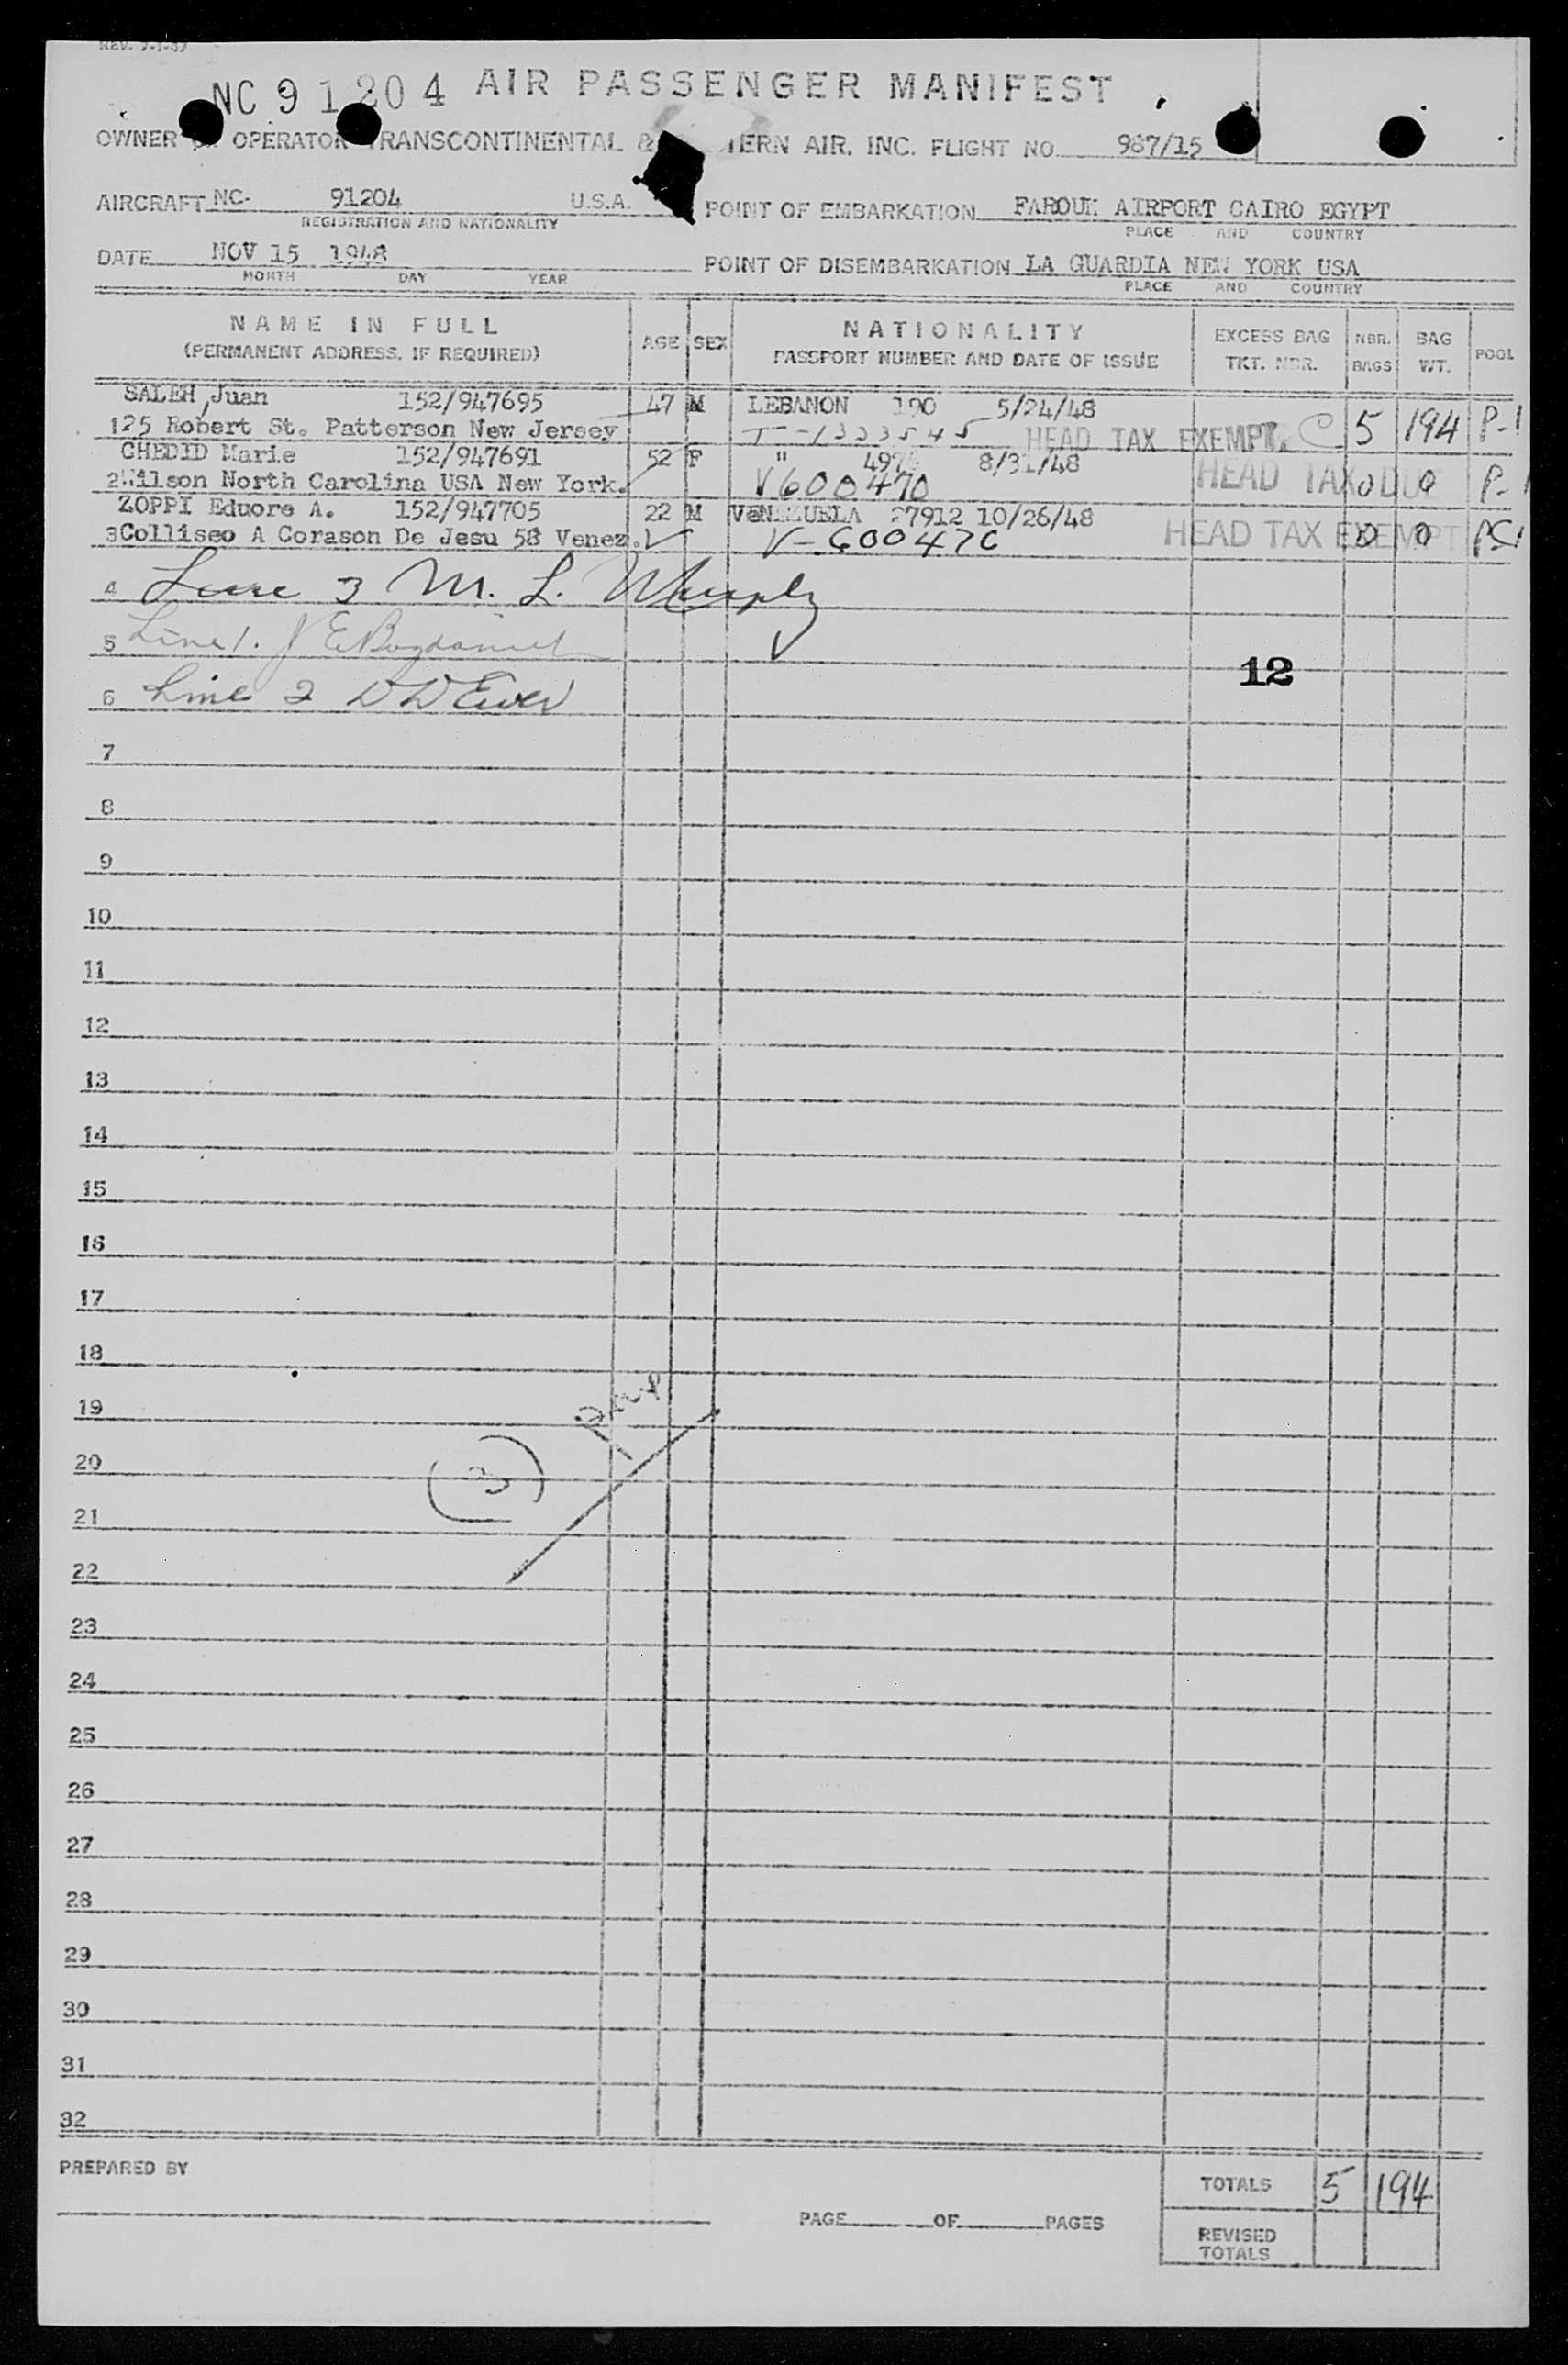 REV. 7-1-47
NC 91204 AIR PASSENGER MANIFEST
OWNER OPERATOR TRANSCONTINENTAL & TERN AIR, INC. FLIGHT NO. 967/15
AIRCRAFT NC- 91204 U.S.A. POINT OF EMBARKATION FAROUK AIRPORT CAIRO EGYPT
REGISTRATION AND NATIONALITY PLACE AND COUNTRY
DATE NOV 15 1948 POINT OF DISEMBARKATION LA GUARDIA NEW YORK USA
MONTH DAY YEAR PLACE AND COUNTRY
NAME IN FULL AGE SEX NATIONALITY EXCESS BAG NBR. BAG POOL
(PERMANENT ADDRESS, IF REQUIRED) PASSPORT NUMBER AND DATE OF ISSUE TKT. NBR. BAGS WT.
SALEH, Juan 152/947695 47 M LEBANON 190 5/24/48
1 25 Robert St. Patterson New Jersey T-1333545 HEAD TAX EXEMPT. C 5 194 P-1
CHEDID Marie 152/947691 52 F " 8/31/48
2 Wilson North Carolina USA New York. V600470 HEAD TAX DUE 0 0 P-1
ZOPPI Eduore A. 152/947705 22 M VENEZUELA 27912 10/26/48
3 Colliseo A Corason De Jesu 58 Venez. V-600470 HEAD TAX EXEMPT 0 0
4 Line 3 M. L. Murphy
5 Line 1.
12
6 Line 2
7
8
9
10
11
12
13
14
15
16
17
18
19
20 (3)
21
22
23
24
25
26
27
28
29
30
31
32
PREPARED BY
TOTALS 5 194
PAGE OF PAGES
REVISED TOTALS